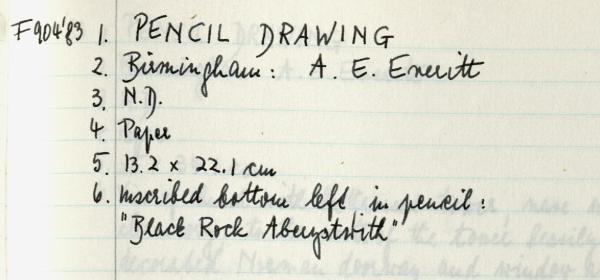 F904'83 1. PENCIL DRAWING
2. Birmingham: A. E. Everitt
3. N.D.
4. Paper
5. 13.2 x 22.1 cm
6. Inscribed bottom left in pencil:
"Black Rock Aberystwith"